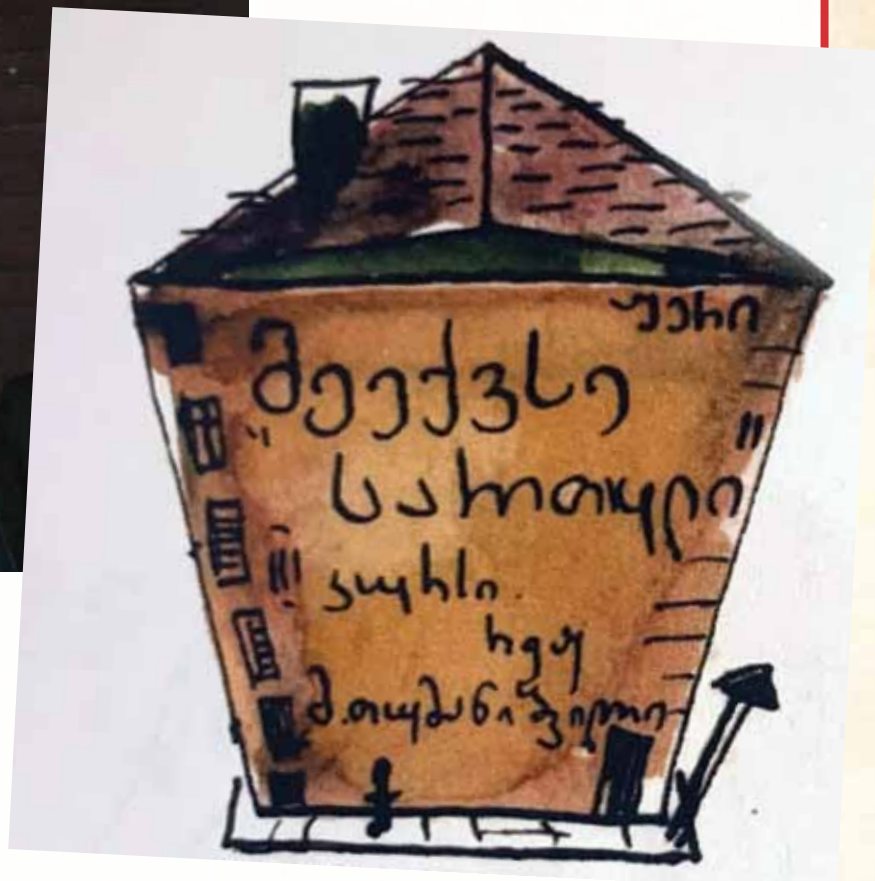 ჟერი
მეექვსე
სართული
კურსი
რეჟ
მ. თუმანიშვილი